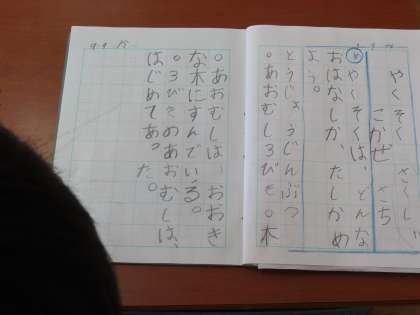 やくそく
こかぜ さち
め やくそくは、どんな
おはなしか、たしかめ
よう。
とうじょうじんぶつ
。あおむし3びき。木
。あおむしは、おおき
な木にすんでいる。
。3びきめあおむしは、
はじめてあった。